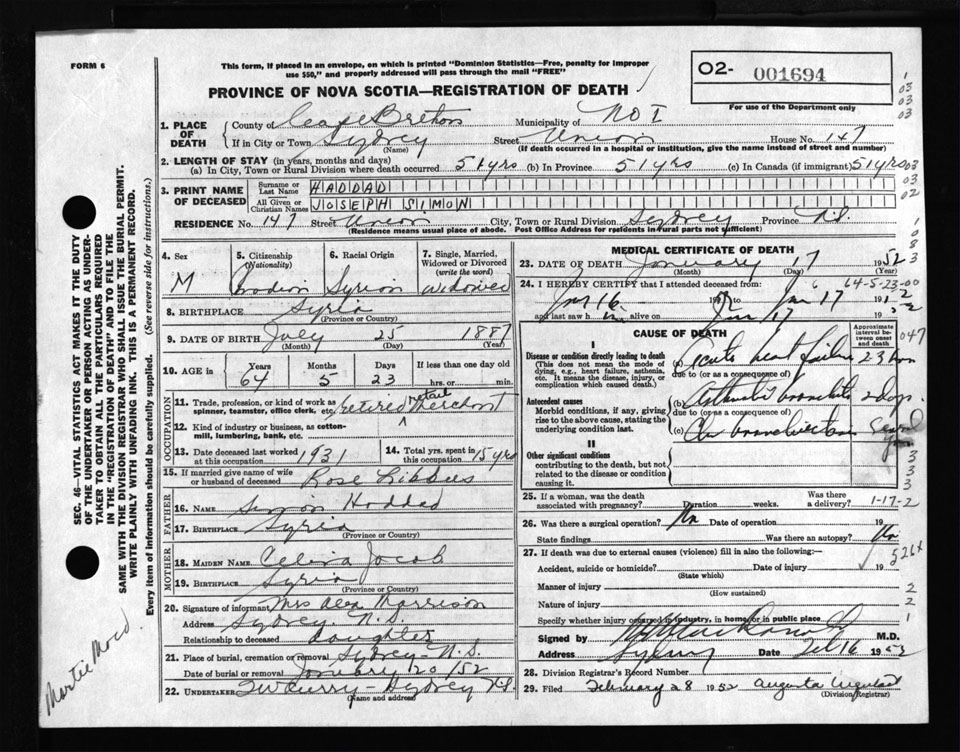 FORM 6
This form, if placed in an envelope, on which is printed "Dominion Statistics—Free, penalty for improper
use $50," and properly addressed will pass through the mail "FREE"
PROVINCE OF NOVA SCOTIA—REGISTRATION OF DEATH
02- 001694
For use of the Department only
03
03
03
1. PLACE OF DEATH
County of Cape Breton Municipality of No I
If in City or Town Sydney Street Union House No. 147
(Name) (If death occurred in a hospital or institution, give the name instead of street and number)
2. LENGTH OF STAY (in years, months and days)
(a) In City, Town or Rural Division where death occurred 51 yrs (b) In Province 51 yrs (c) In Canada (if immigrant) 51 yrs
03
03
02
3. PRINT NAME OF DECEASED
Surname or Last Name HADDAD
All Given or Christian Names JOSEPH SIMON
RESIDENCE No. 147 Street Union City, Town or Rural Division Sydney Province N.S.
(Residence means usual place of abode. Post Office Address for residents in rural parts not sufficient)
4. Sex M
5. Citizenship (Nationality) Canadian
6. Racial Origin Syrian
7. Single, Married, Widowed or Divorced (write the word) Widowed
8. BIRTHPLACE Syria
(Province or Country)
9. DATE OF BIRTH July 25 1887
(Month) (Day) (Year)
10. AGE in Years 64 Months 5 Days 23 If less than one day old hrs. or min.
OCCUPATION
11. Trade, profession, or kind of work as spinner, teamster, office clerk, etc. retired retail Merchant
12. Kind of industry or business, as cotton-mill, lumbering, bank, etc.
13. Date deceased last worked at this occupation 1931
14. Total yrs. spent in this occupation 15 yrs
15. If married give name of wife or husband of deceased Rose
FATHER
16. Name Simon Haddad
17. Birthplace Syria
(Province or Country)
MOTHER
18. Maiden Name Jacob
19. Birthplace Syria
(Province or Country)
20. Signature of informant Mrs Alex Morrison
Address Sydney N.S.
Relationship to deceased daughter
21. Place of burial, cremation or removal Sydney N.S.
Date of burial or removal January 20/52
22. UNDERTAKER Curry - Sydney N.S.
(Name and address)
MEDICAL CERTIFICATE OF DEATH
23. DATE OF DEATH January 17 1952
(Month) (Day) (Year)
24. I HEREBY CERTIFY that I attended deceased from: 64-5-23-00
Jan 16 Jan 17
and last saw him alive on Jan 17
CAUSE OF DEATH
Approximate interval between onset and death
047
I
Disease or condition directly leading to death
(This does not mean the mode of dying, e.g., heart failure, asthenia, etc. It means the disease, injury, or complication which caused death.)
(a) Acute heart failure 2-3
due to (or as a consequence of)
Antecedent causes
Morbid conditions, if any, giving rise to the above cause, stating the underlying condition last.
(b) bronchitis 2 days
due to (or as a consequence of)
(c)
II
Other significant conditions
contributing to the death, but not related to the disease or condition causing it.
3
3
3
25. If a woman, was the death associated with pregnancy? Duration weeks. Was there a delivery?
1-17-2
26. Was there surgical operation? No Date of operation 19
State findings Was there an autopsy? No
27. If death was due to external causes (violence) fill in also the following:—
Accident, suicide or homicide? Date of injury 19
(State which)
Manner of injury
(How sustained)
2
2
1
Nature of injury
Specify whether injury occurred in industry, in home or in public place
Signed by M.D.
Address Sydney Date Feb 16 1952
28. Division Registrar's Record Number
29. Filed February 28 1952 Augusta
(Division Registrar)
SEC. 46—VITAL STATISTICS ACT MAKES IT THE DUTY
OF THE UNDERTAKER OR PERSON ACTING AS UNDER-
TAKER TO OBTAIN ALL THE PARTICULARS REQUIRED
IN THE "REGISTRATION OF DEATH" AND TO FILE THE
SAME WITH THE DIVISION REGISTRAR WHO SHALL ISSUE THE BURIAL PERMIT.
WRITE PLAINLY WITH UNFADING INK. THIS IS A PERMANENT RECORD.
Every item of information should be carefully supplied. (See reverse side for instructions.)